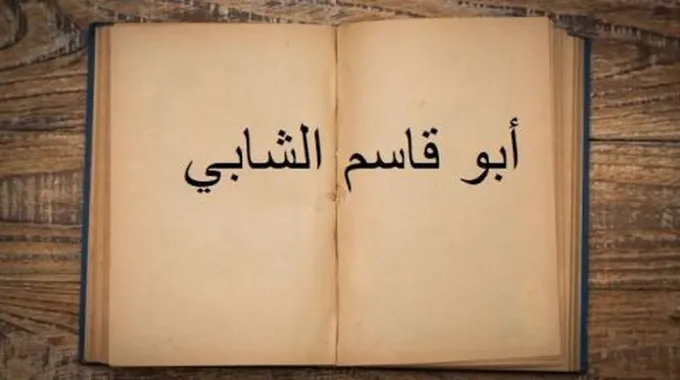 أبو قاسم الشابي